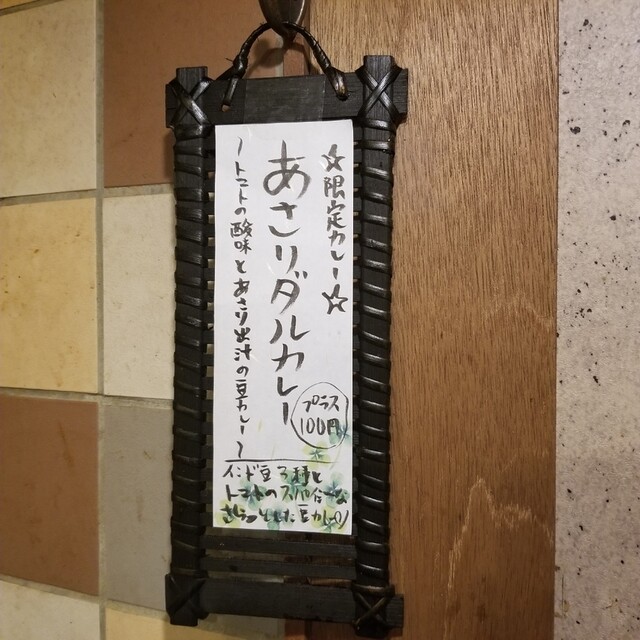 ☆限定カレー☆
あさりダルカレー
プラス
100円
〜トマトの酸味とあさり出汁の豆カレー〜
インド豆3種と
トマトのスパイシーな
さらっとした豆カレー